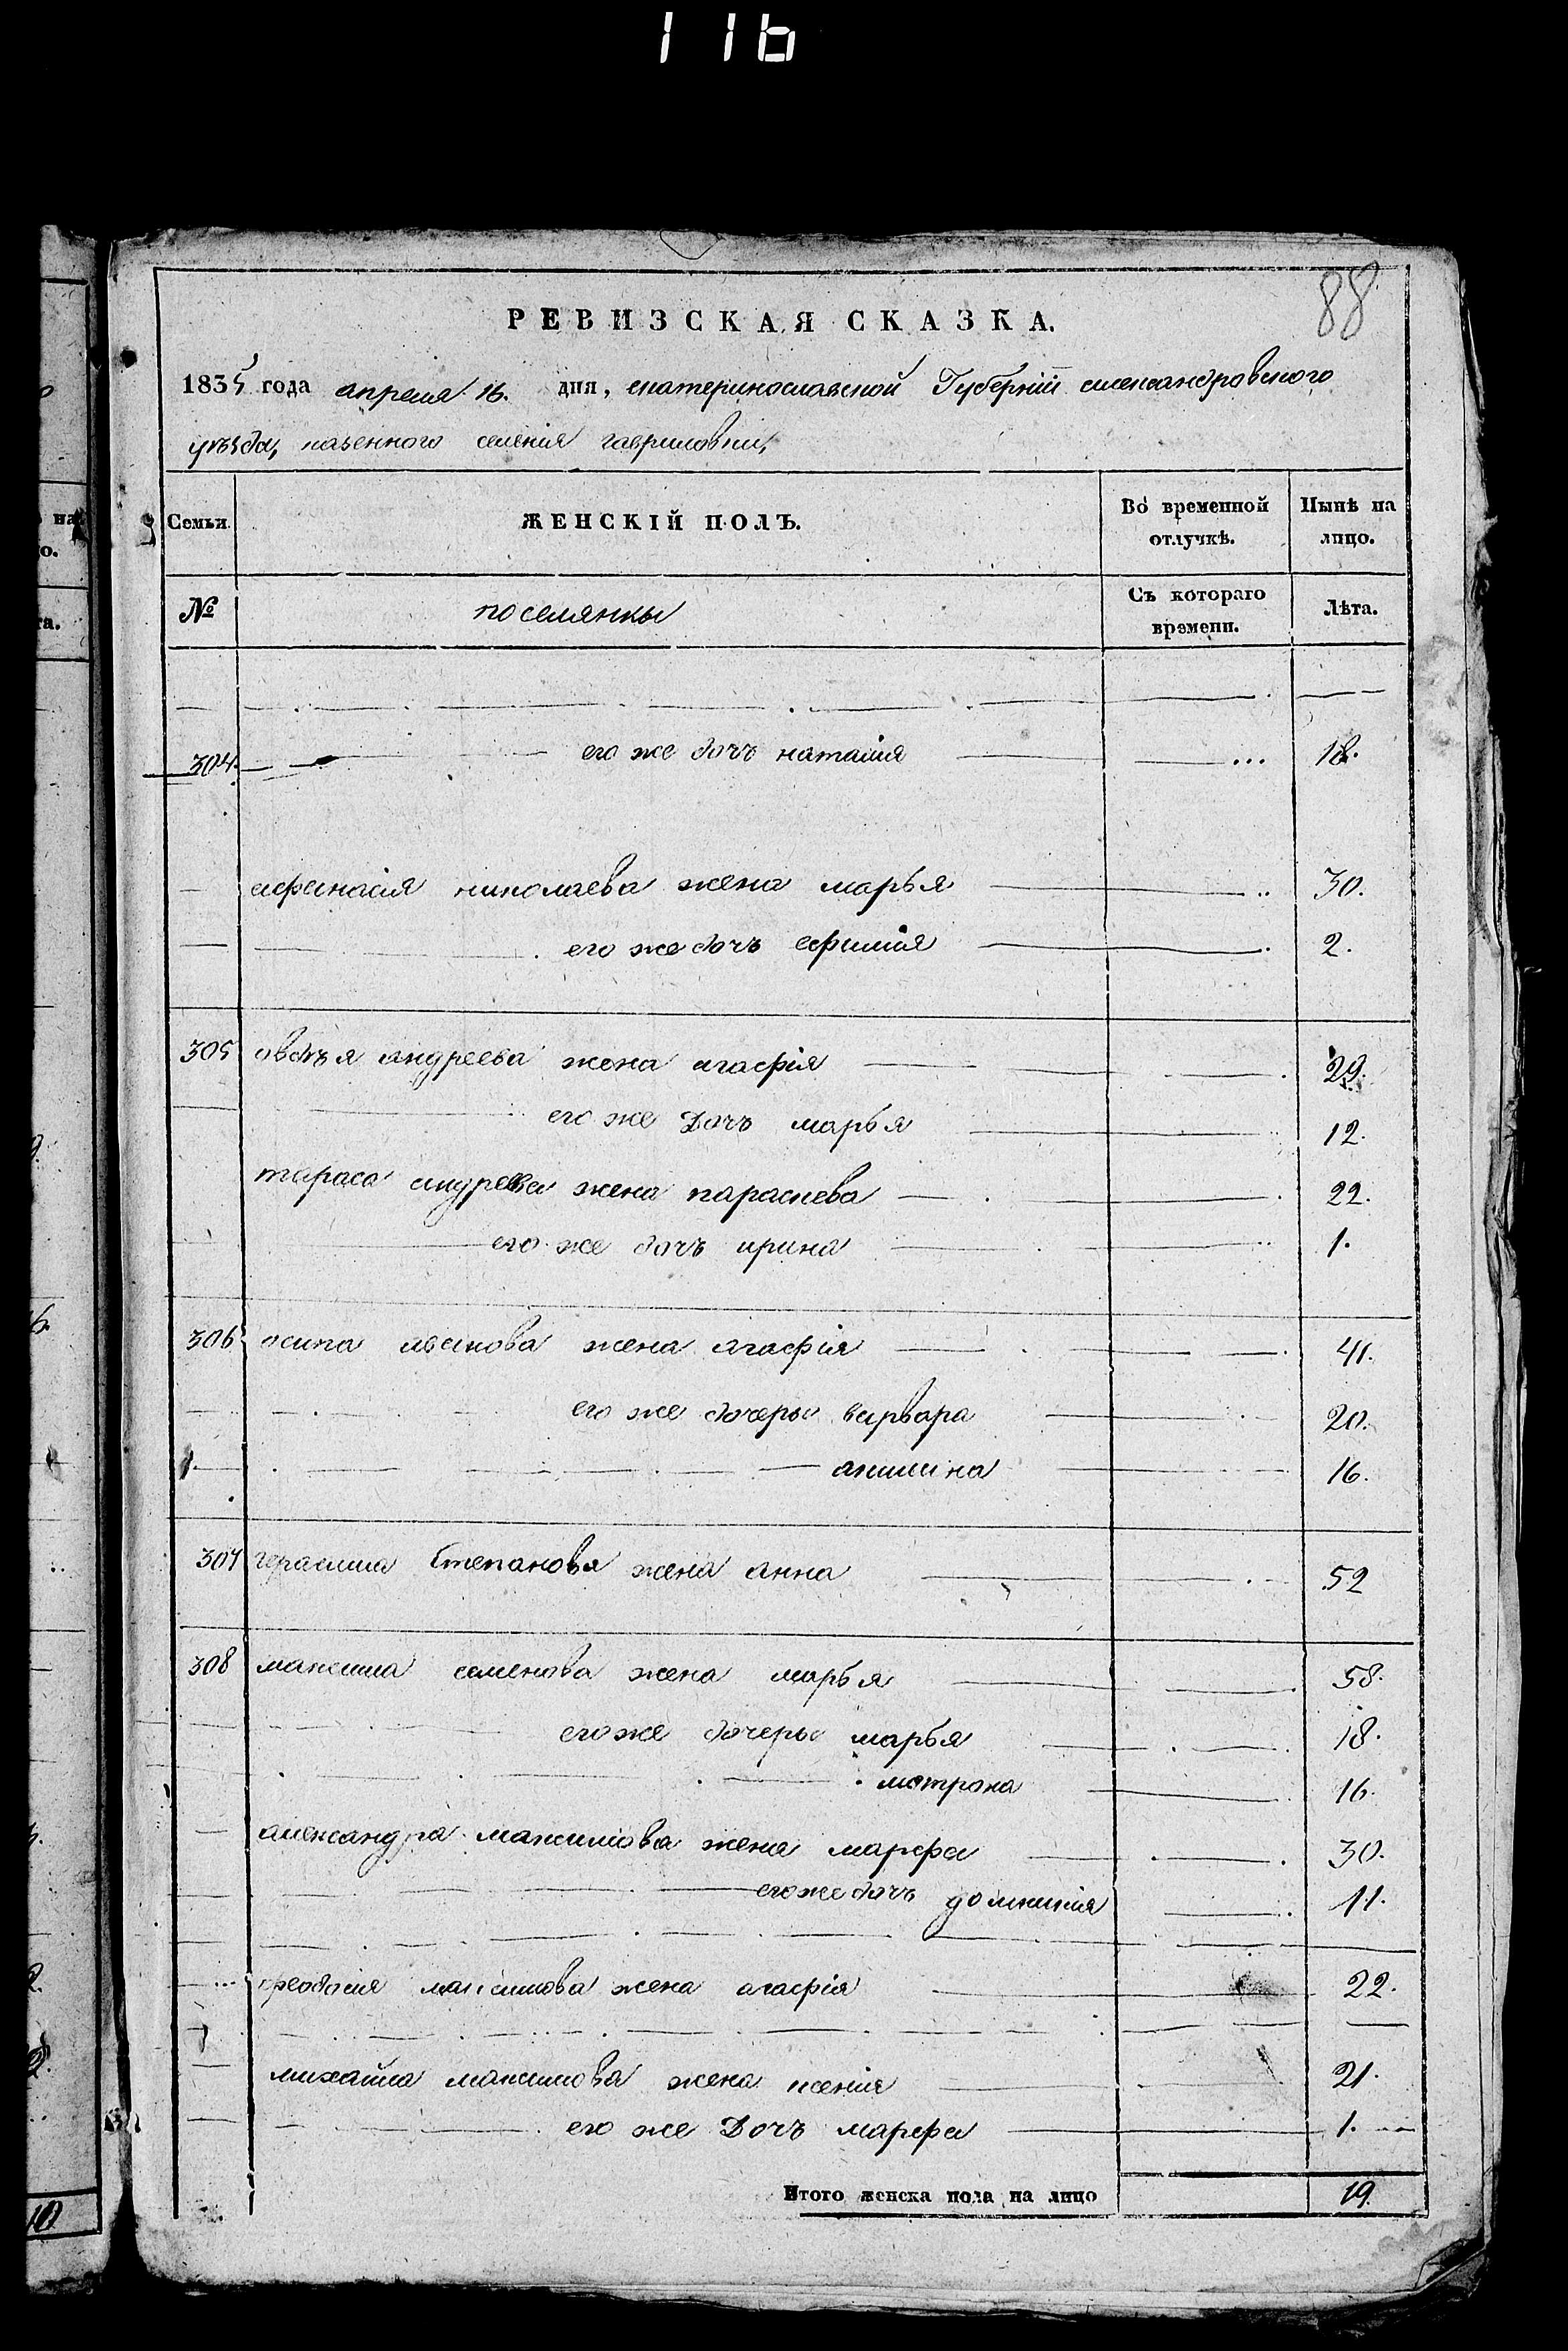 116
88
РЕВИЗСКАЯ СКАЗКА.
1835 года апреля 16. дня, екатеринославской Губерніи александровского
уѣзда, казенного селенія гавриловки,
Семьи ЖЕНСКІЙ ПОЛЪ. Во временной отлучкѣ. Нынѣ на лицо.
№ поселянки Съ котораго времени. Лѣта.
304. его же дочъ наталія 18.
афанасія николаева жена марья 30.
его же дочъ ефимія 2.
305 овдѣя андреева жена агафія 29.
его же Дочъ марья 12.
тараса андреева жена параскева 22.
его же дочъ ирина 1.
306 осипа иванова жена агафія 41.
его же дочеры варвара 20.
акилина 16.
307 герасима Степанова жена анна 52
308 максима семенова жена марья 58.
его же дочеры марья 18.
матрона 16.
александра максимова жена марфа 30.
его же дочъ домникія 11.
феодосія максимова жена агафія 22.
михайла максимова жена ксенія 21.
его же Дочъ марфа 1.
Итого женска пола на лицо 19.